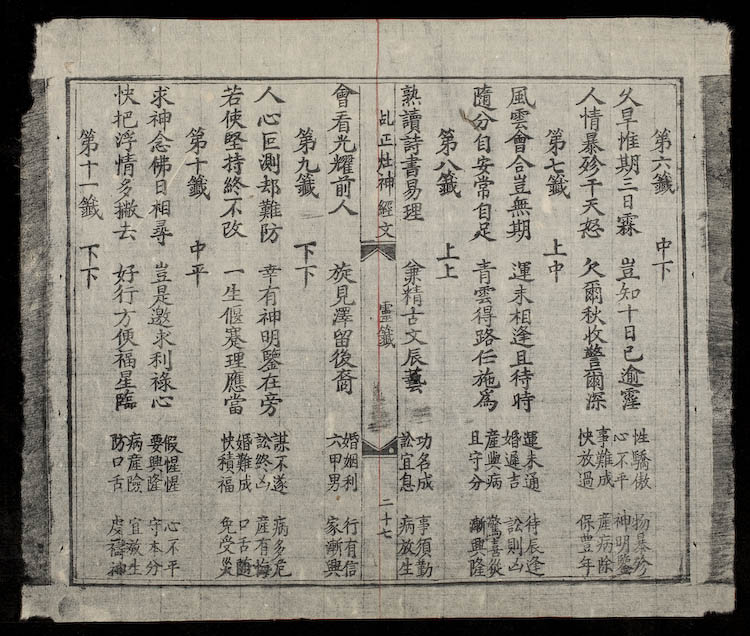 第六籤 中下
久早惟期三日霖 豈知十日已逾霪
性驕傲 物暴殄
心不平 神明鑒
人情暴殄干天怒 欠爾秋收警爾深
事難成 產病除
快放過 保豐年
第七籤 上中
風雲會合豈無期 運未相逢且待時
運未通 待辰逢
婚遲吉 訟則凶
隨分自安常自足 青雲得路任施為
產與病 驚喜災
且守分 漸興隆
第八籤 上上
熟讀詩書易理 兼精古文辰藝
功名成 事須勤
訟宜息 病放生
乩正灶神經文 靈籤 二十七
會看光耀前人 旋見澤留後裔
婚姻利 行有信
六甲男 家漸興
第九籤 下下
人心叵測却難防 幸有神明鑒在旁
謀不遂 病多危
訟終凶 產有悔
若使堅持終不改 一生偃蹇理應當
婚難成 口舌隨
快積福 免受災
第十籤 中平
求神念佛日相尋 豈是邀求利祿心
假惺惺 心不平
要興隆 守本分
快把浮情多撇去 好行方便福星臨
病產險 宜放生
防口舌 虔禱神
第十一籤 下下